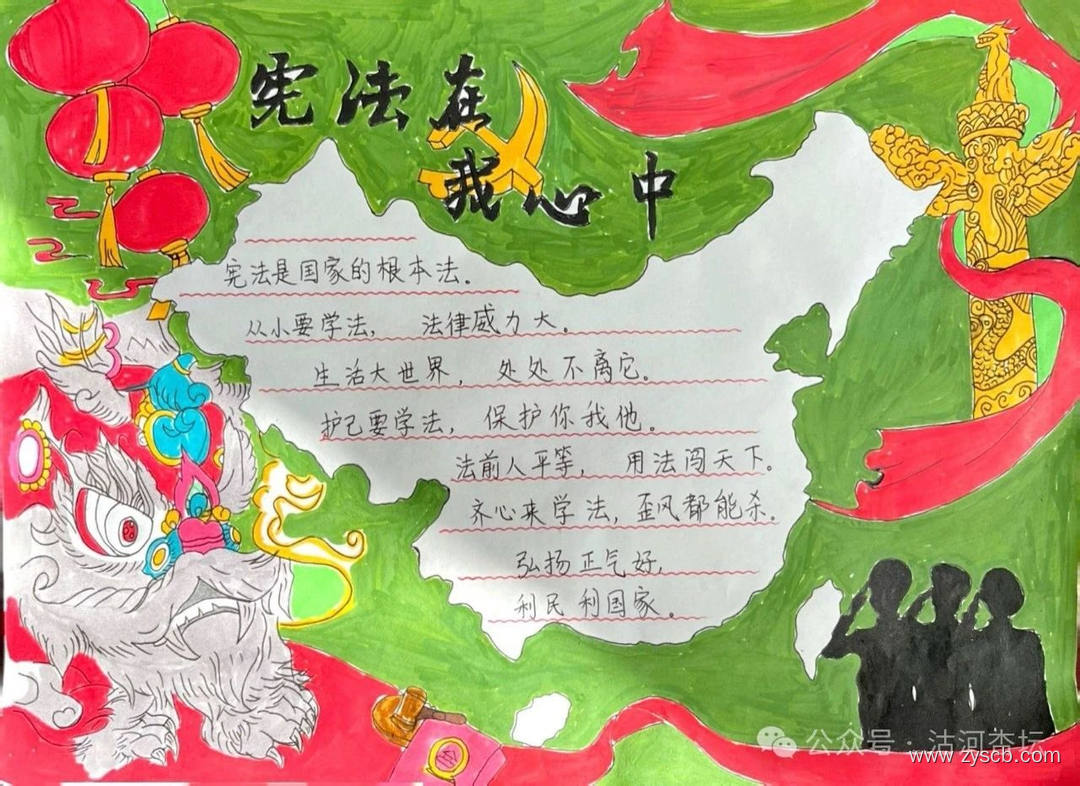 宪法在
我心中
宪法是国家的根本法。
从小要学法, 法律威力大。
生活大世界, 处处不离它。
护己要学法, 保护你我他。
法前人平等, 用法闯天下。
齐心来学法, 歪风都能杀。
弘扬正气好,
利民利国家。
公众号·沽河杏坛
www.zyscb.com